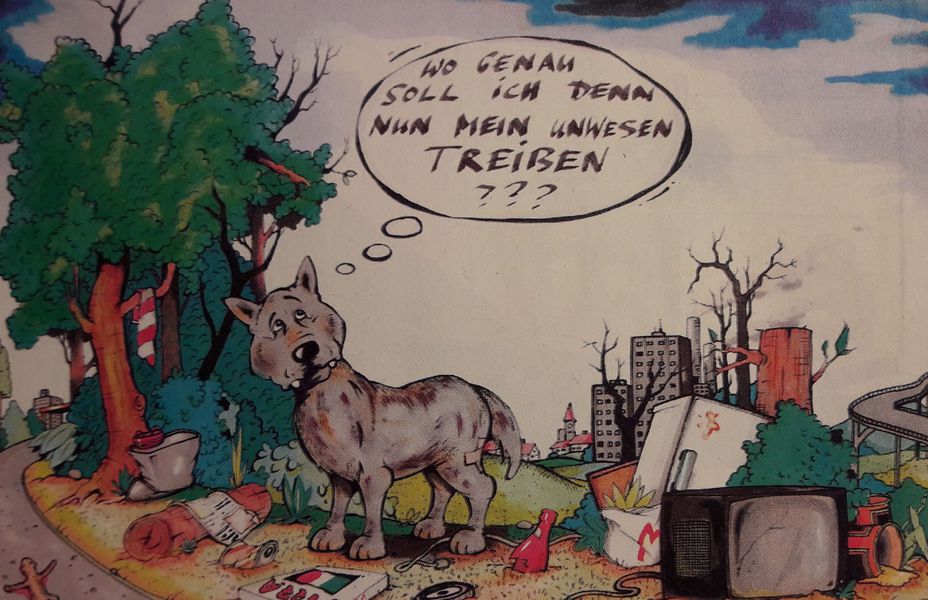 WO GENAU
SOLL ICH DENN
NUN MEIN UNWESEN
TREIBEN
???
M